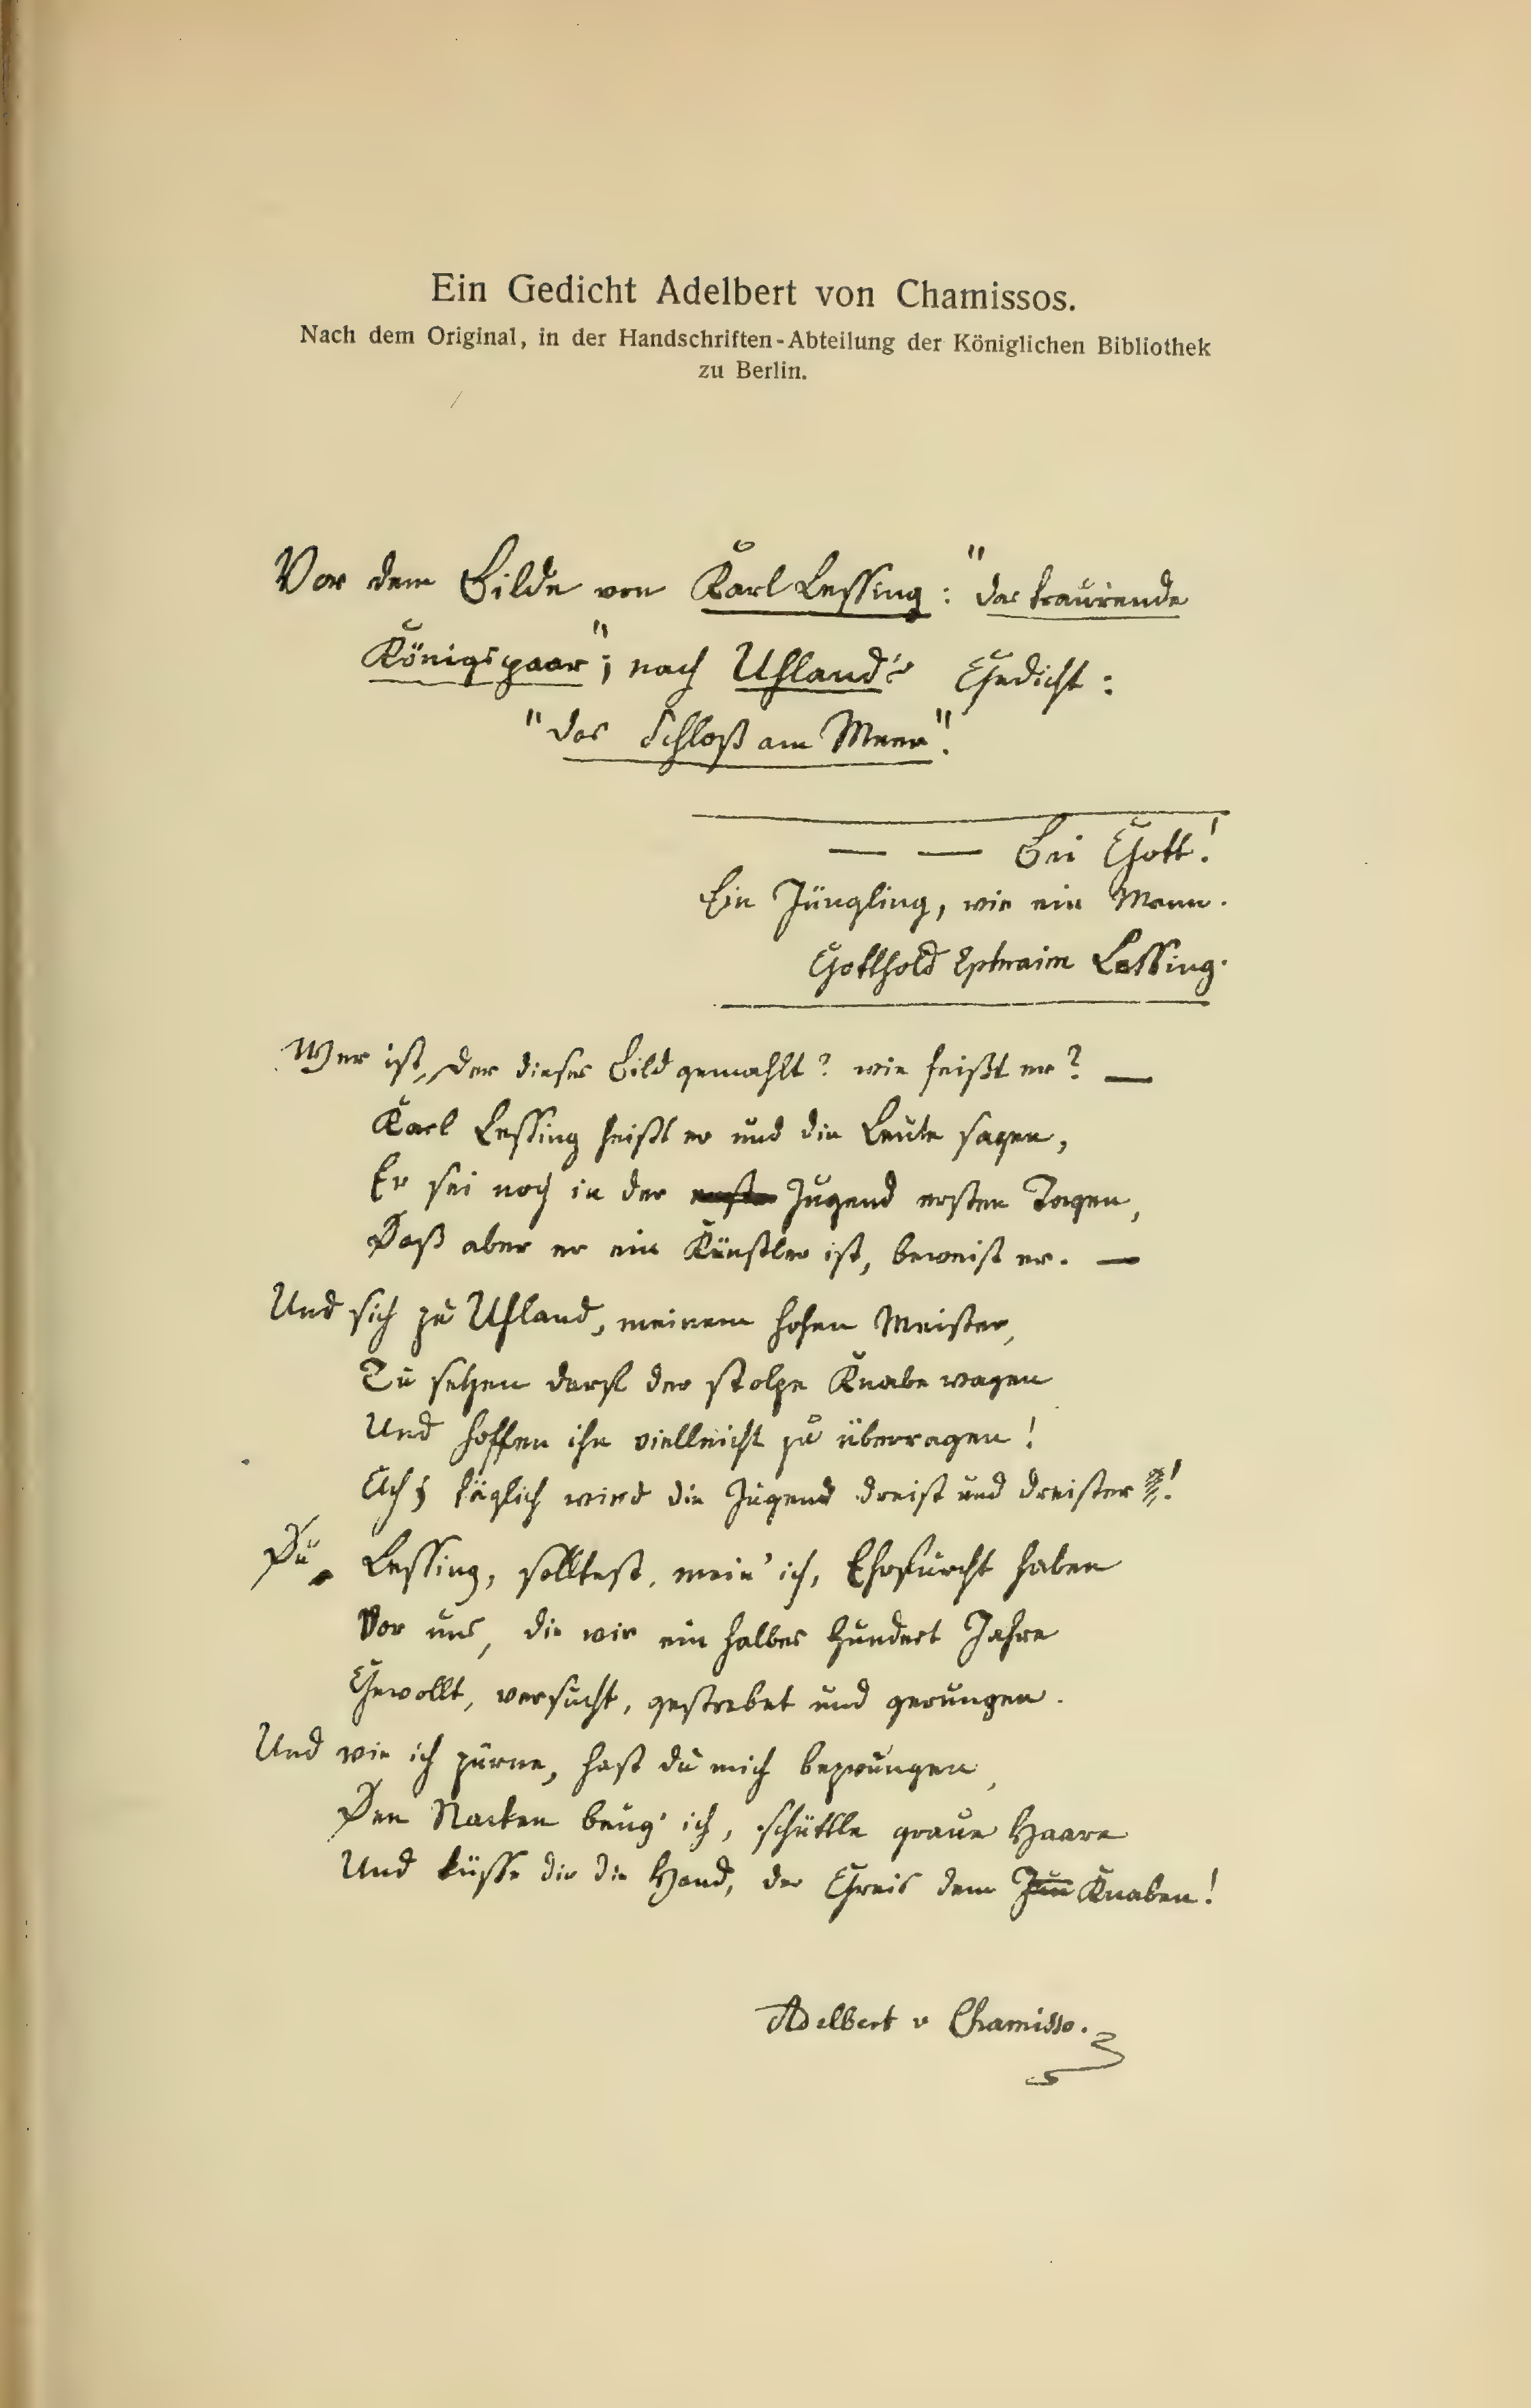 Ein Gedicht Adelbert von Chamissos.
Nach dem Original, in der Handschriften-Abteilung der Königlichen Bibliothek
zu Berlin.
Vor dem Bilde von Karl Lessing: "das traurende
Königspaar"; nach Uhland's Gedicht:
"das Schloß am Meer".
— — Bei Gott!
Ein Jüngling, wie ein Mann.
Gotthold Ephraim Lessing.
Wer ist, der dieses Bild gemahlt? wie heißt er? —
Karl Lessing heißt er und die Leute sagen,
Er sei noch in der Jugend ersten Tagen,
Daß aber er ein Künstler ist, beweist er. —
Und sich zu Uhland, meinem hohen Meister,
Zu setzen darf der stolze Knabe wagen
Und hoffen ihn vielleicht zu überragen!
Ach, täglich wird die Jugend dreist und dreister!
Du Lessing, solltest, mein' ich, Ehrfurcht haben
Vor uns, die wir ein halbes hundert Jahre
Gewollt, versucht, gestrebet und gerungen.
Und wie ich zürne, hast du mich bezwungen,
Den Nacken beug' ich, schüttle graue Haare
Und küsse dir die Hand, der Greis dem Knaben!
Adelbert v Chamisso.